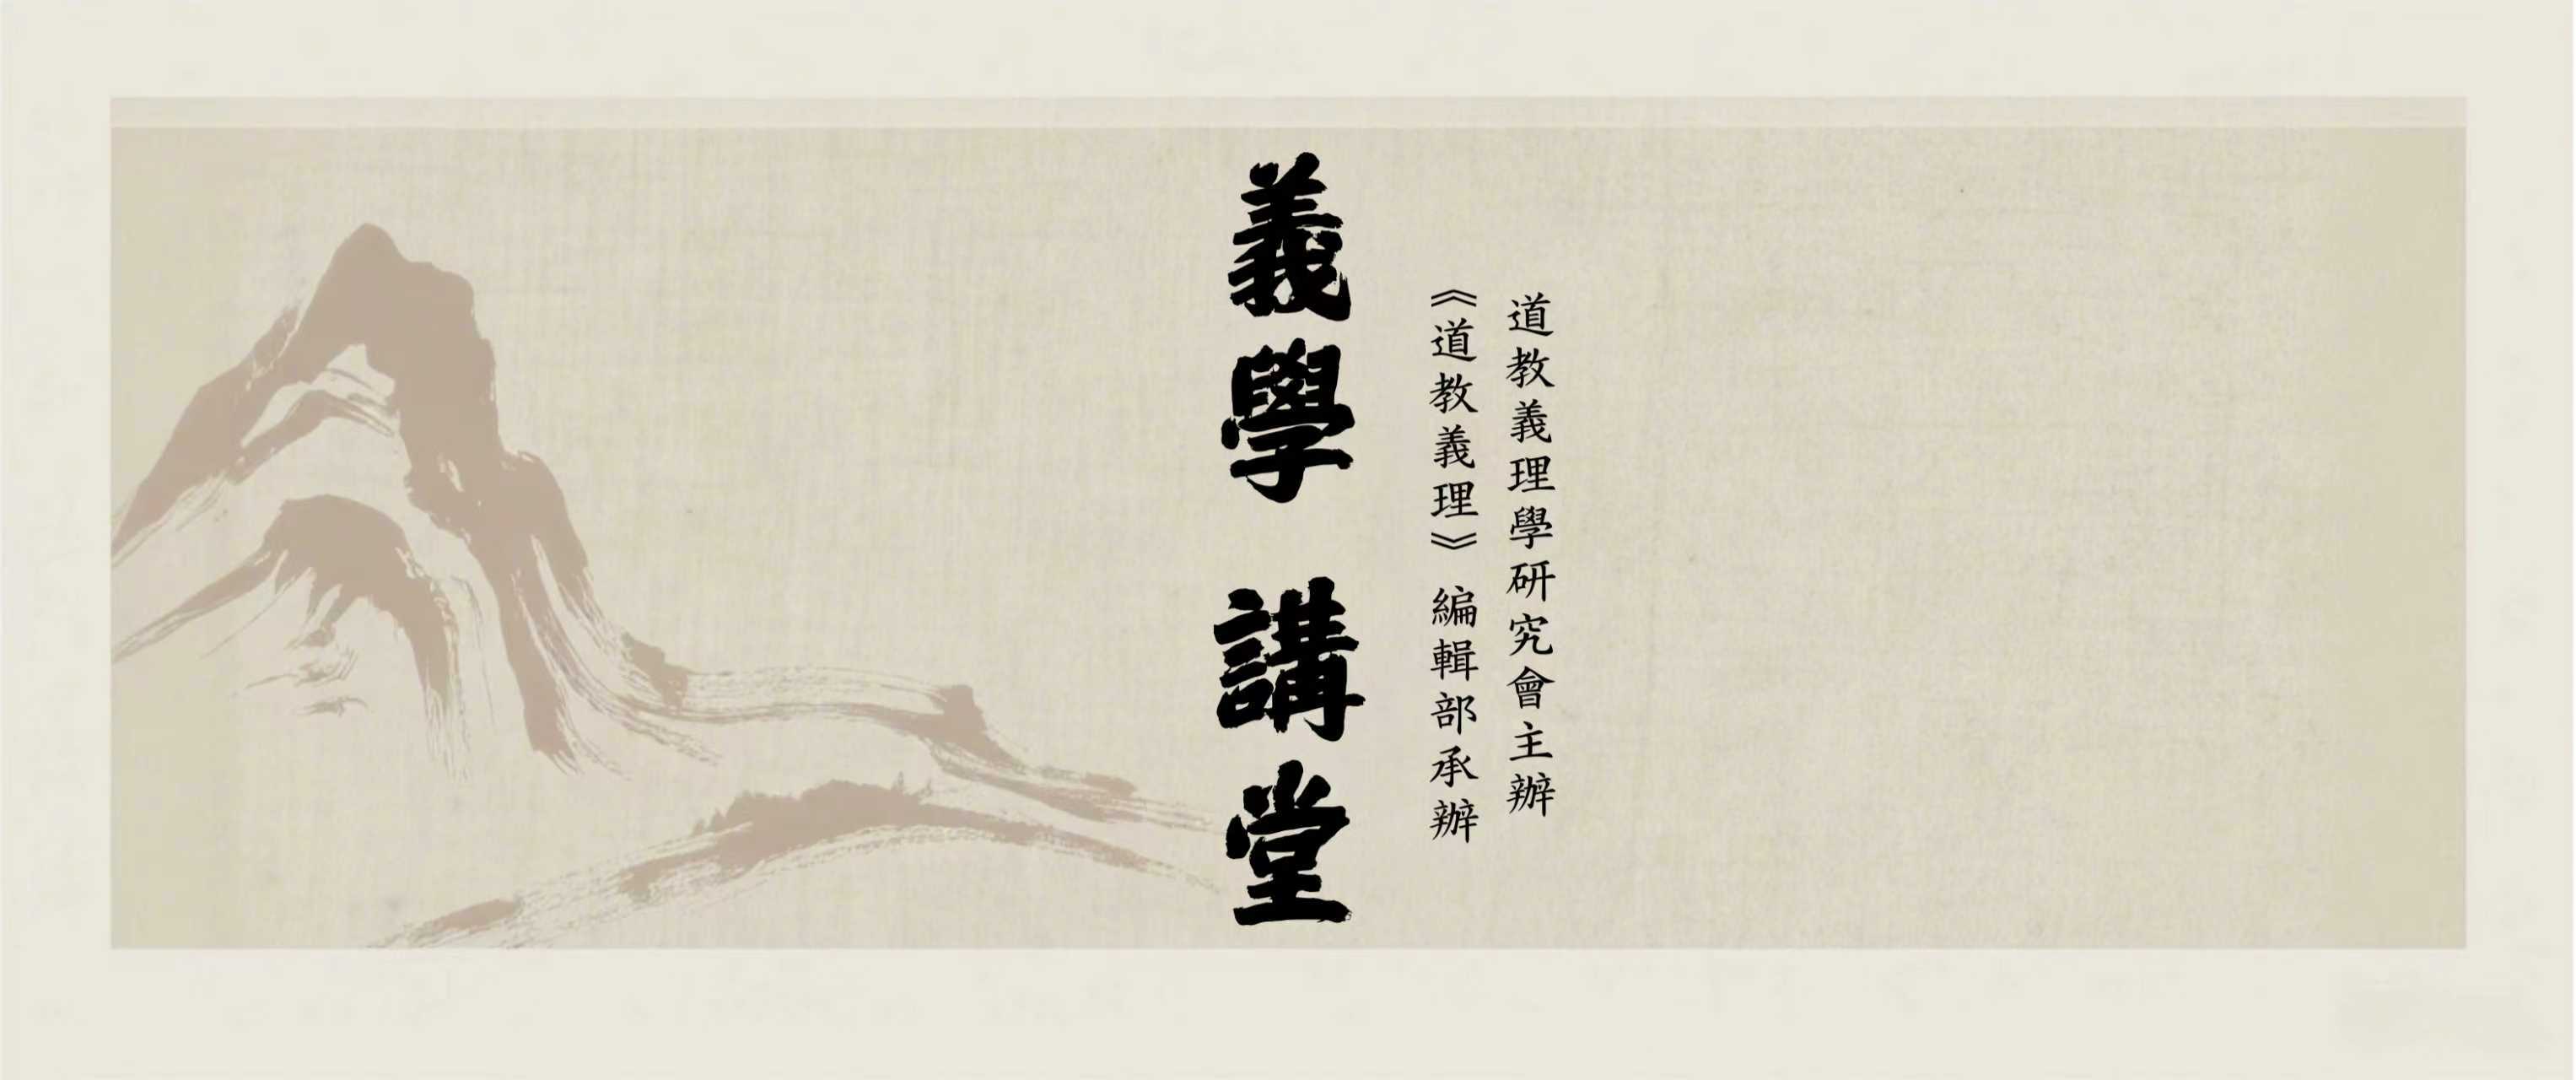 道教義理學研究會主辦
《道教義理》編輯部承辦
義學講堂